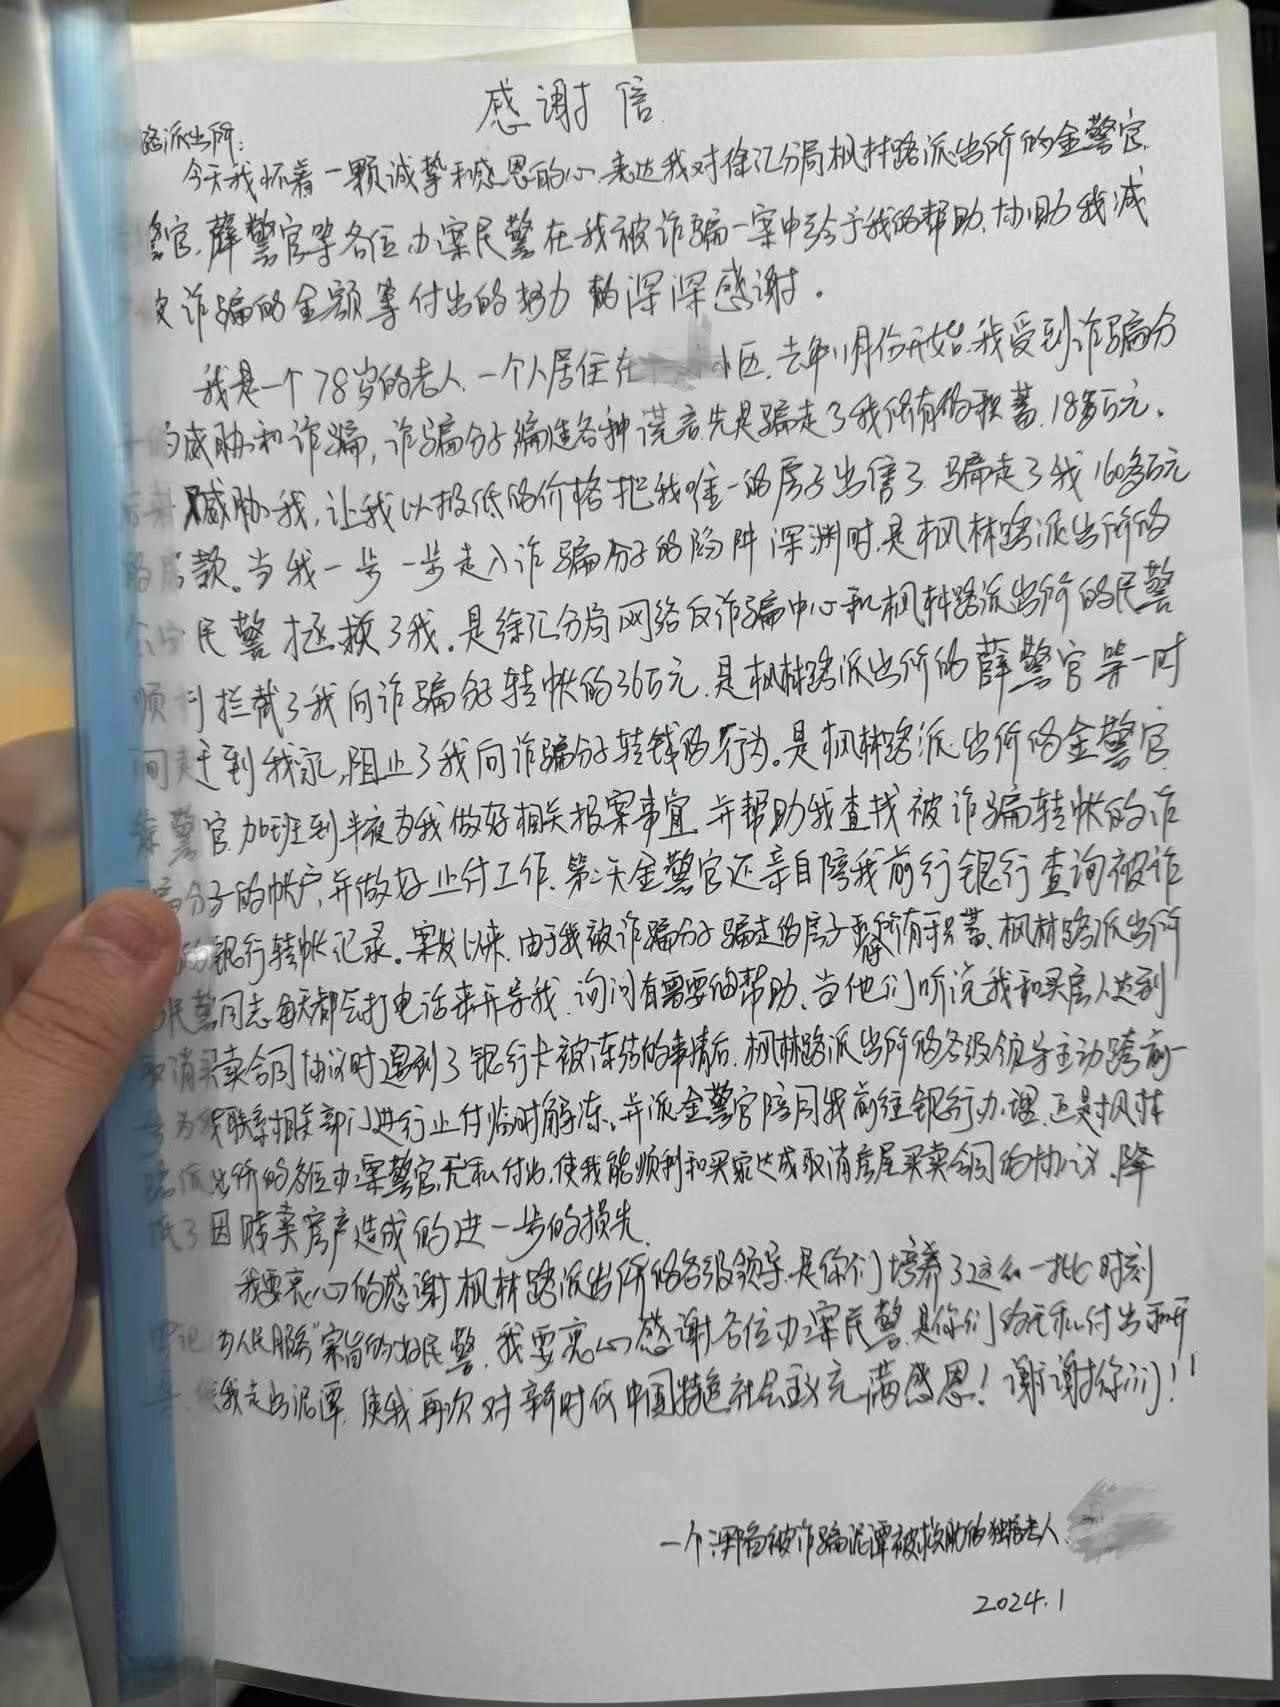 感谢信
路派出所:
今天我怀着一颗诚挚和感恩的心、表达我对徐汇分局枫林路派出所的金警官、
警官、薛警官等各位办案民警在我被诈骗一案中给于我的帮助、协助我减
诈骗的金额等付出的努力 的深深感谢。
我是一个78岁的老人、一个人居住在 小区、去年11月份开始、我受到诈骗分
的威胁和诈骗, 诈骗分子编造各种谎言先是骗走了我所有的积蓄、18多万元。
威胁我, 让我以极低的价格把我唯一的房子出售了 骗走了我160多万元
的房款。当我一步一步走入诈骗分子的陷阱深渊时、是枫林路派出所的
民警拯救了我。是徐汇分局网络反诈骗中心和枫林路派出所的民警
顺利拦截了我向诈骗分子转帐的36万元、是枫林路派出所的薛警官等一时
间赶到我家, 阻止了我向诈骗分子转钱的行为。是枫林路派出所的金警官、
警官、加班到半夜为我做好相关报案事宜、并帮助我查找被诈骗转帐的诈
骗分子的帐户, 并做好止付工作、第二天金警官还亲自陪我前行银行查询被诈
的银行转帐记录。案发以来、由于我被诈骗分子骗走的房子 所有积蓄、枫林路派出所
民警同志每天都会打电话来开导我、询问有需要的帮助、当他们听说我和买房人达到
取消买卖合同协议时遇到了银行卡被冻结的事情后、枫林路派出所的各级领导主动跨前一
步为我联系相关部门进行止付临时解冻, 并派金警官陪同我前往银行办理、还是枫林
路派出所的各位办案警官, 无私付出, 使我能顺利和买家达成取消房屋买卖合同的协议、降
低了因贱卖房产造成的进一步的损失、
我要衷心的感谢枫林路派出所的各级领导、是你们培养了这么一批时刻
牢记"为人民服务"宗旨的好民警、我要衷心感谢各位办案民警、是你们的无私付出和开
导 使我走出泥潭、使我再次对新时代中国特色社会主义充满感恩! 谢谢你们!!
一个深陷被诈骗泥潭被救助的独居老人、
2024.1